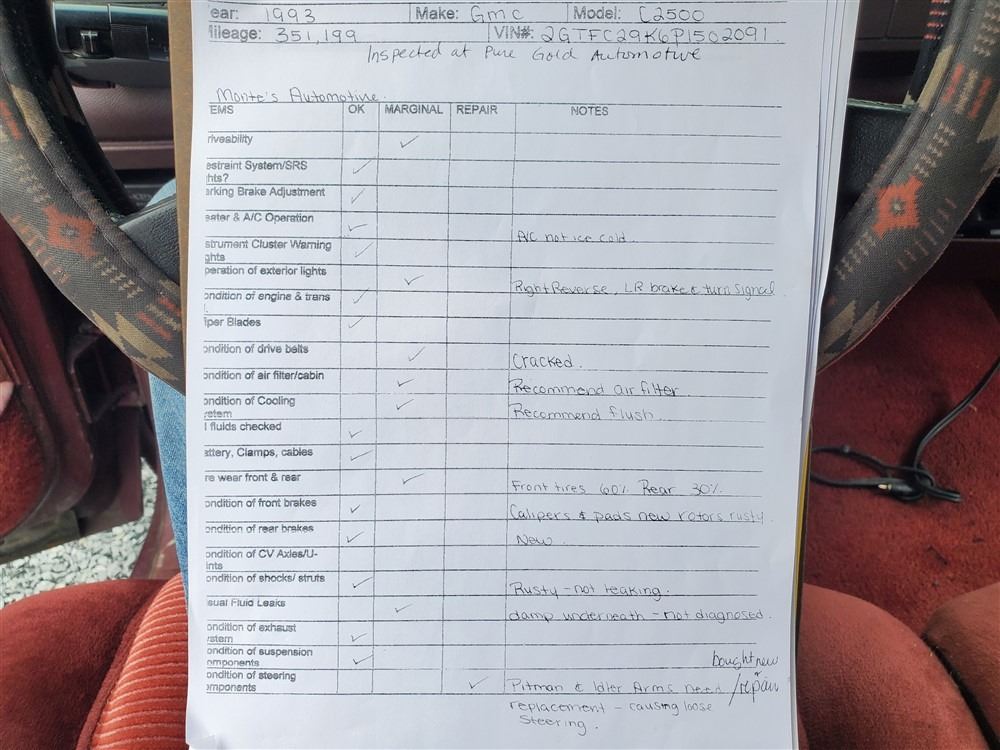 ear: 1993 Make: Gmc Model: C2500
ileage: 351,199 VIN#: 2GTFC29K6P1502091
Inspected at Pure Gold Automotive
Monte's Automotive.
EMS OK MARGINAL REPAIR NOTES
riveability ✓
estraint System/SRS
hts? ✓
arking Brake Adjustment ✓
eater & A/C Operation ✓ A/C not ice cold.
strument Cluster Warning
ghts ✓
peration of exterior lights ✓ Right Reverse, LR brake & turn signal.
ondition of engine & trans ✓
iper Blades ✓
ondition of drive belts ✓ Cracked.
ondition of air filter/cabin ✓ Recommend air filter
ondition of Cooling
ystem ✓ Recommend flush.
l fluids checked ✓
attery, Clamps, cables ✓
re wear front & rear ✓ Front tires 60% Rear 30%.
ondition of front brakes ✓ Calipers & pads new rotors rusty.
ondition of rear brakes ✓ New.
ondition of CV Axles/U-
ints
ondition of shocks/ struts ✓ Rusty - not leaking.
sual Fluid Leaks ✓ damp underneath - not diagnosed.
ondition of exhaust
ystem ✓
ondition of suspension
omponents ✓
bought new
ondition of steering
omponents ✓ Pitman & Idler Arms need / repair
replacement - causing loose
Steering.